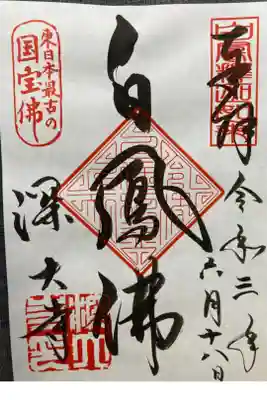 奉拝
令和三年
六月十八日
白鳳佛
深大寺
東日本最古の
国宝佛